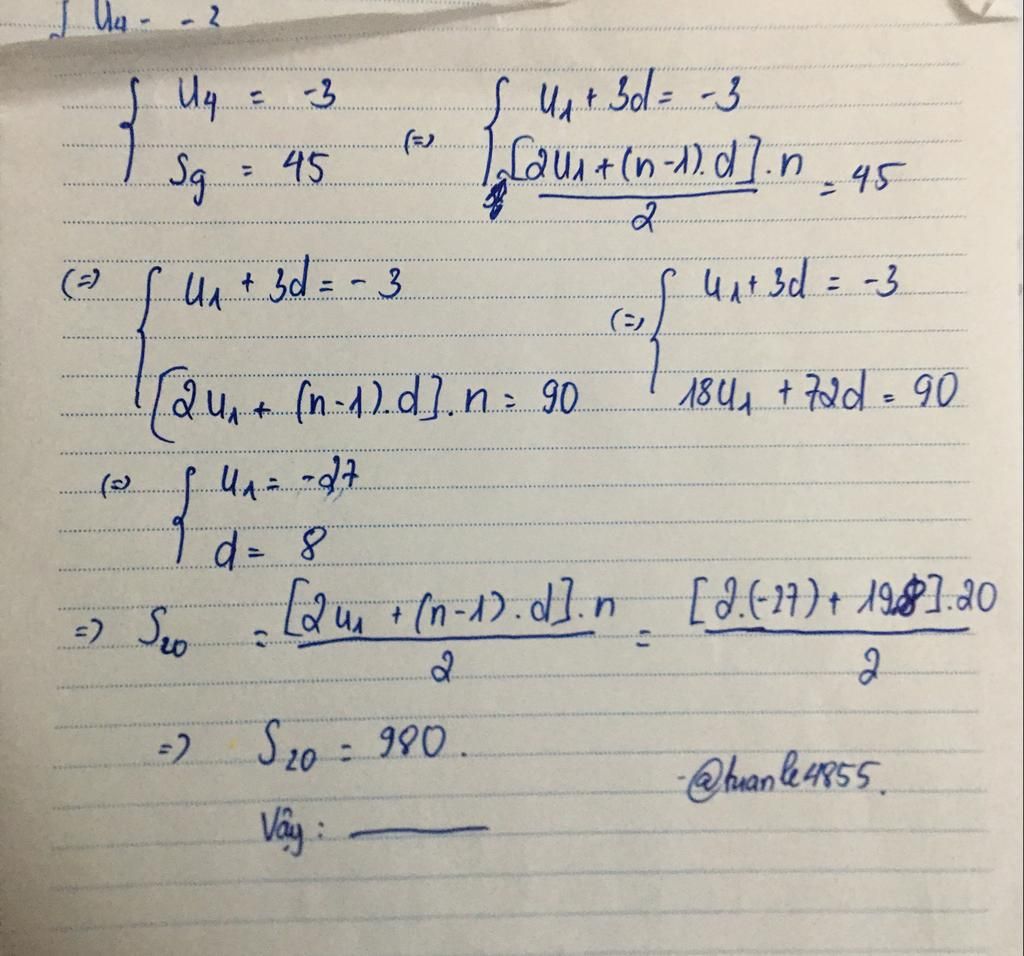 { U4 = -3
{ U4 = -3 (=) { U1 + 3d = -3
S9 = 45 [2U1 + (n-1).d].n / 2 = 45
(=) { U1 + 3d = -3 (=) { U1 + 3d = -3
[2U1 + (n-1).d].n = 90 18U1 + 72d = 90
(=) { U1 = -27
d = 8
=> S20 = [2U1 + (n-1).d].n / 2 = [2.(-27) + 19.8].20 / 2
=> S20 = 980.
-@tuanle4855.
Vậy :